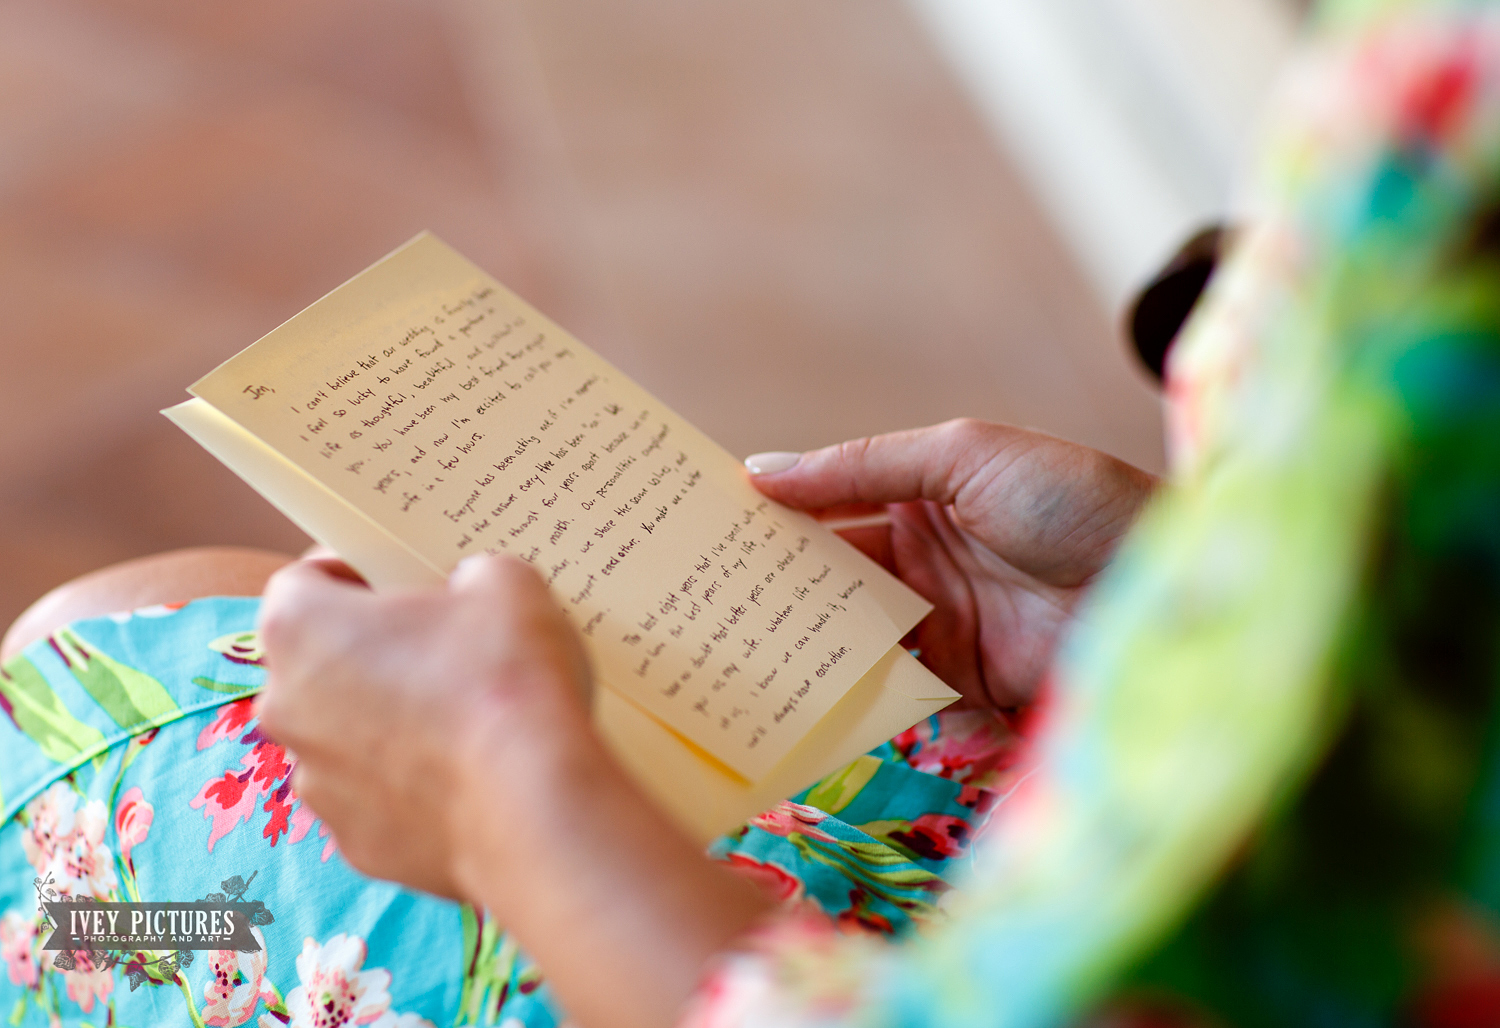 Jen,
I can't believe that our wedding is finally
I feel so lucky to have found a partner in
life as thoughtful, beautiful, and
you. You have been my best friend for eight
years, and now I'm excited to call you my
wife in a few hours.
Everyone has been asking me if I'm nervous,
and the answer every time has been "no."
it through four years apart because we
match. Our personalities complement
another, we share the same values, and
support each other. You make me a better
person.
The last eight years that I've spent with you
have been the best years of my life, and I
have no doubt that better years are ahead with
you as my wife. Whatever life throws
at us, I know we can handle it, because
we'll always have each other.
IVEY PICTURES
PHOTOGRAPHY AND ART